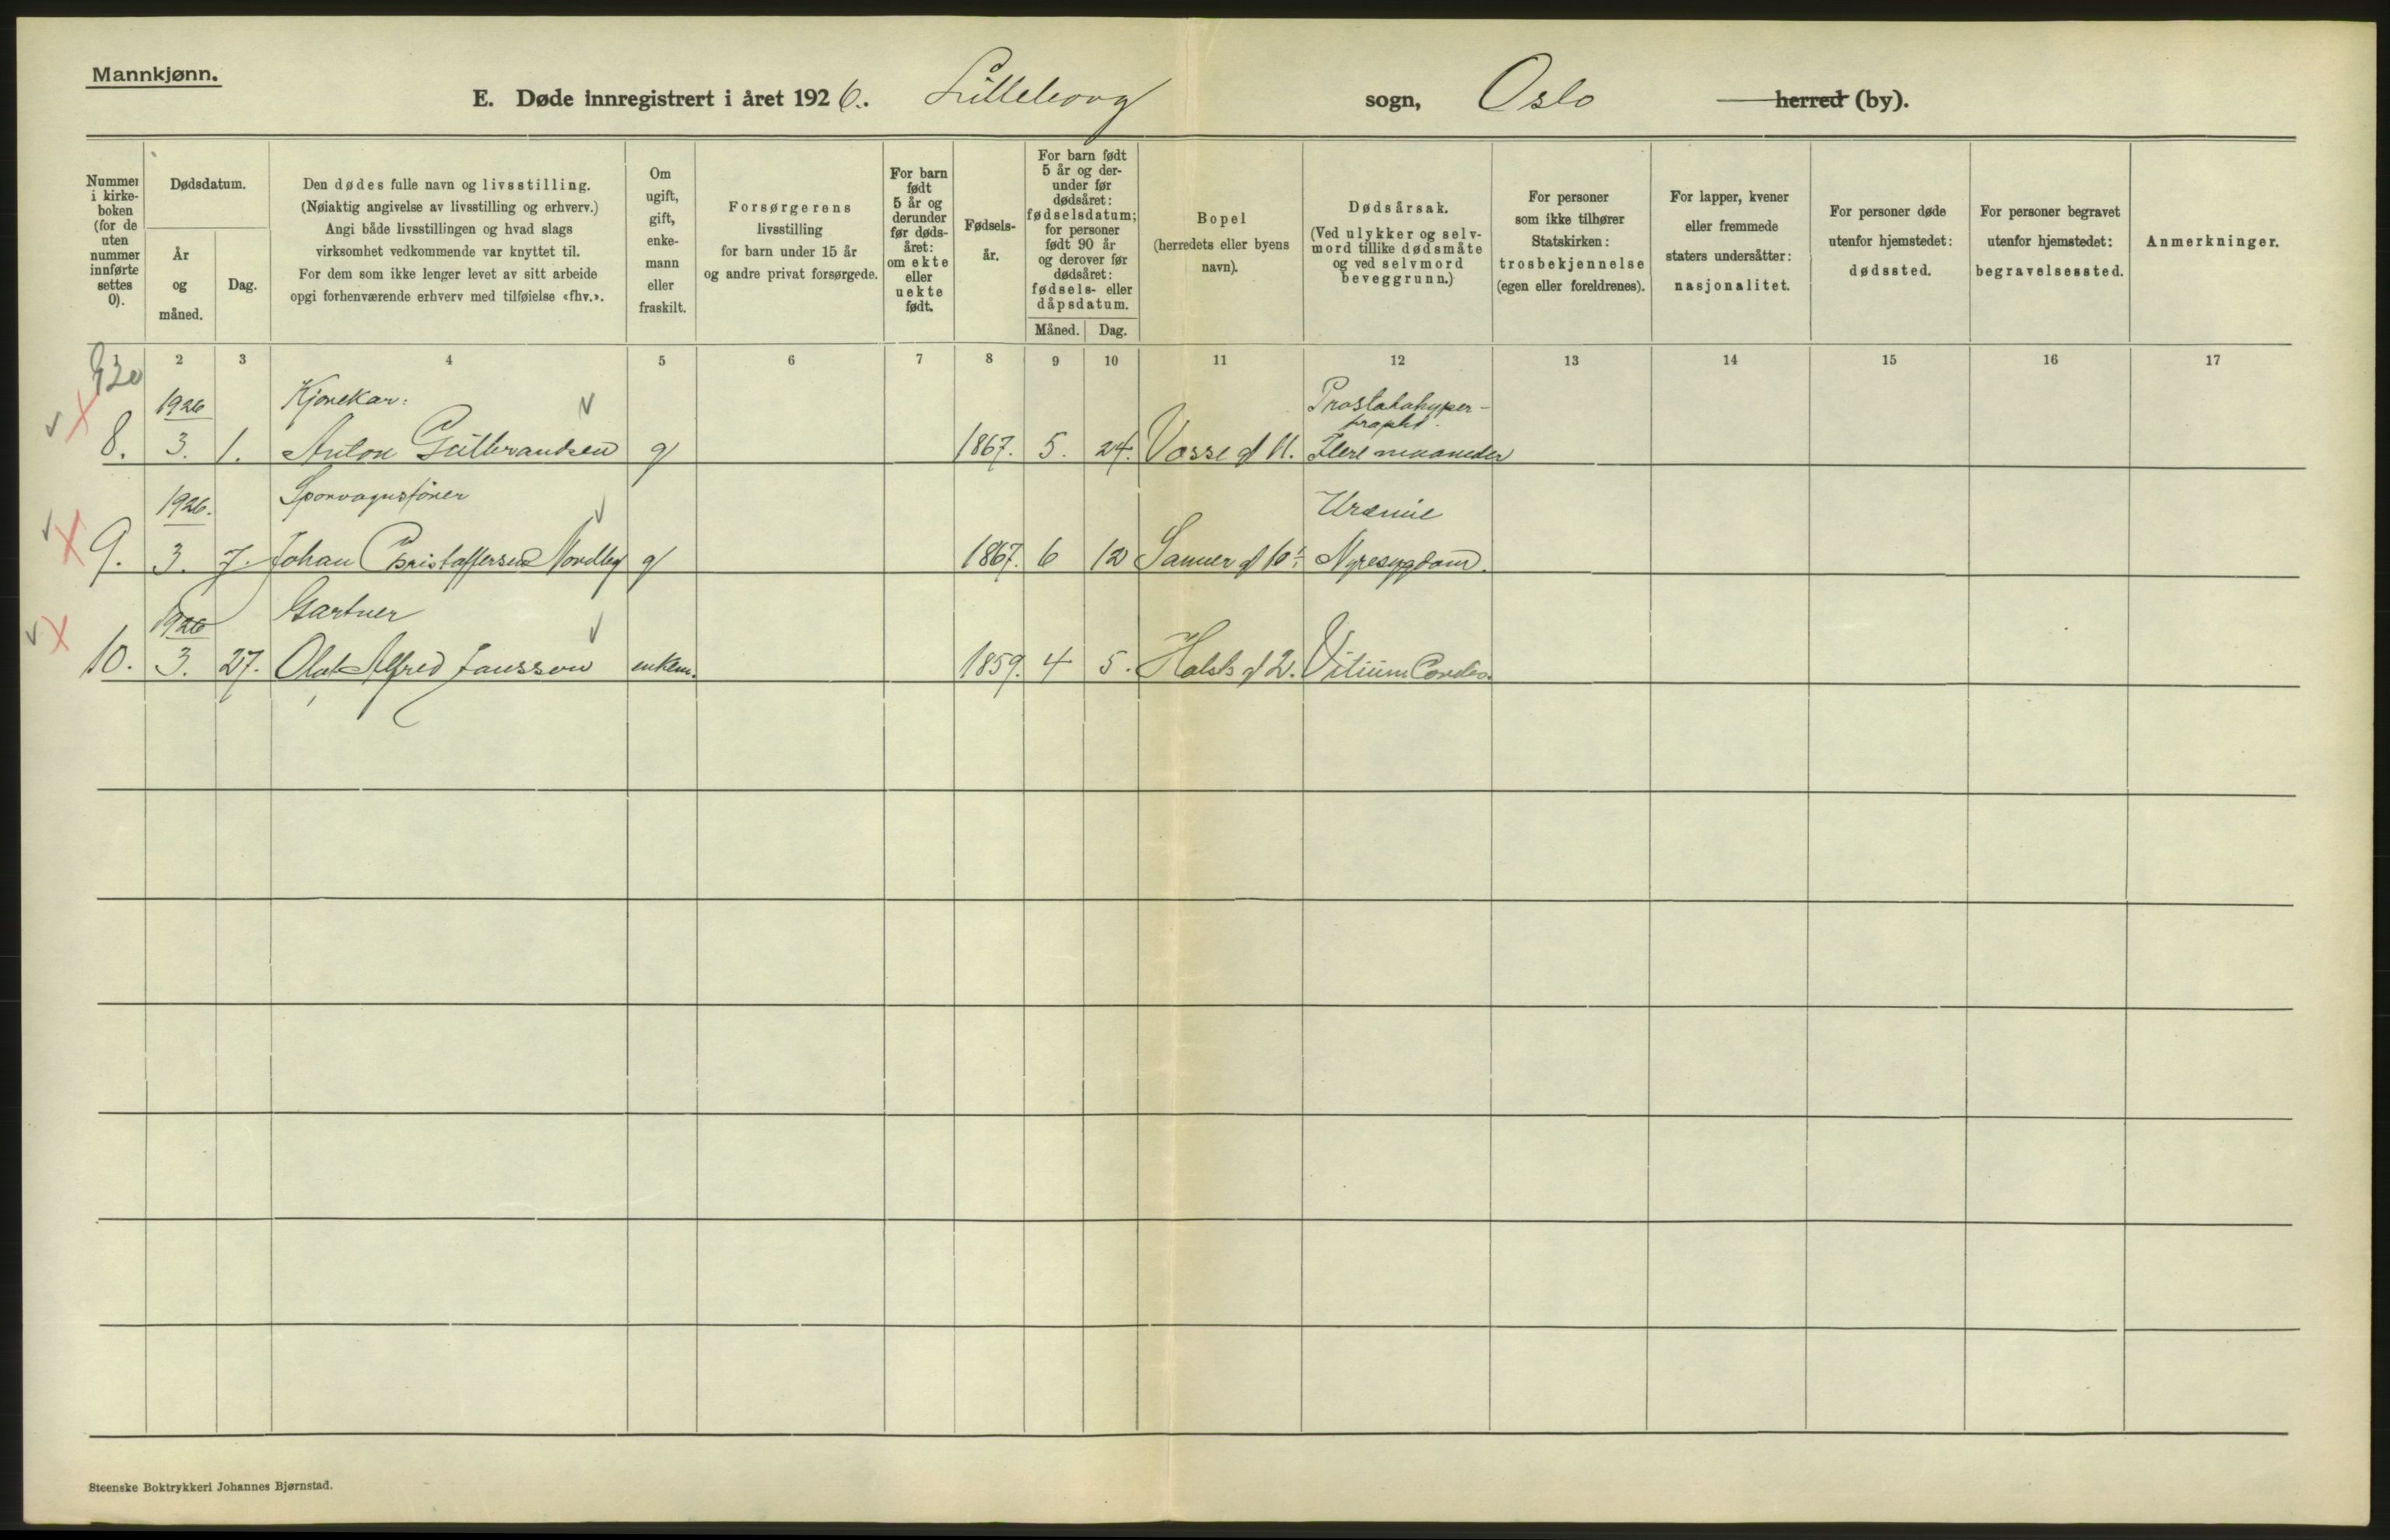 Mannkjønn.
E. Døde innregistrert i året 1926. Lilleborg sogn, Oslo herred (by).
Nummer
i kirke-
boken
(for de
uten
nummer
innførte
settes
0).
Dødsdatum.
År
og
måned.
Dag.
Den dødes fulle navn og livsstilling.
(Nøiaktig angivelse av livsstilling og erhverv.)
Angi både livsstillingen og hvad slags
virksomhet vedkommende var knyttet til.
For dem som ikke lenger levet av sitt arbeide
opgi forhenværende erhverv med tilføielse «fhv.».
Om
ugift,
gift,
enke-
mann
eller
fraskilt.
Forsørgerens
livsstilling
for barn under 15 år
og andre privat forsørgede.
For barn
født
5 år og
derunder
før døds-
året:
om ekte
eller
uekte
født.
Fødsels-
år.
For barn født
5 år og der-
under før
dødsåret:
fødselsdatum;
for personer
født 90 år
og derover før
dødsåret:
fødsels- eller
dåpsdatum.
Måned. Dag.
Bopel
(herredets eller byens
navn).
Dødsårsak.
(Ved ulykker og selv-
mord tillike dødsmåte
og ved selvmord
beveggrunn.)
For personer
som ikke tilhører
Statskirken:
trosbekjennelse
(egen eller foreldrenes).
For lapper, kvener
eller fremmede
staters undersåtter:
nasjonalitet.
For personer døde
utenfor hjemstedet:
dødssted.
For personer begravet
utenfor hjemstedet:
begravelsessted.
Anmerkninger.
1 2 3 4 5 6 7 8 9 10 11 12 13 14 15 16 17
930
1926 Kjørekar: Prostatahyper-
trophi.
8. 3. 1. Anton Gulbrandsen g 1867. 5. 24. Vosse g 11. Flere maaneder
1926. Sporvognsfører Uræmie
9. 3. 7. Johan Christoffersen Nordby g 1867. 6 12 Sanner g 10 Nyresygdom.
1926 Gartner
10. 3. 27. Olof Alfred Jansson enkem. 1859. 4 5. Holsts g 2. Vitium Cordis.
Steenske Boktrykkeri Johannes Bjørnstad.